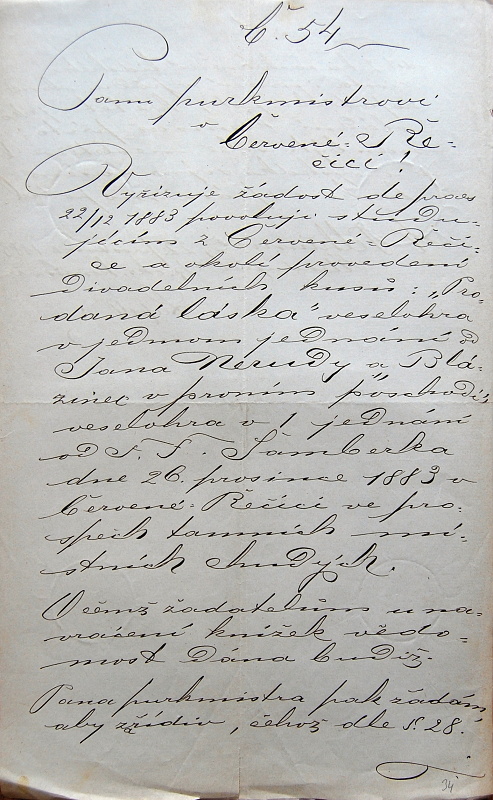 Č. 54
Panu purkmistrovi
v
Červené-Ře-
čici!
Vyřizuje žádost de praes
22/12 1883 povoluji studu-
jícím z Červené-Řeči-
ce a okolí provedení
divadelních kusů: „Pro-
daná láska" veselohra
v jednom jednání od
Jana Nerudy a Blá-
zinec v prvním poschodí"
veselohra v 1 jednání
od F. F. Šamberka
dne 26. prosince 1883 v
Červené-Řečici ve pro-
spěch tamních mí-
stních chudých.
O čemž žadatelům u na-
vrácení knížek vědo-
most dána budiž.
Pana purkmistra pak žádám,
aby zřídiv, čehož dle §. 28.
34